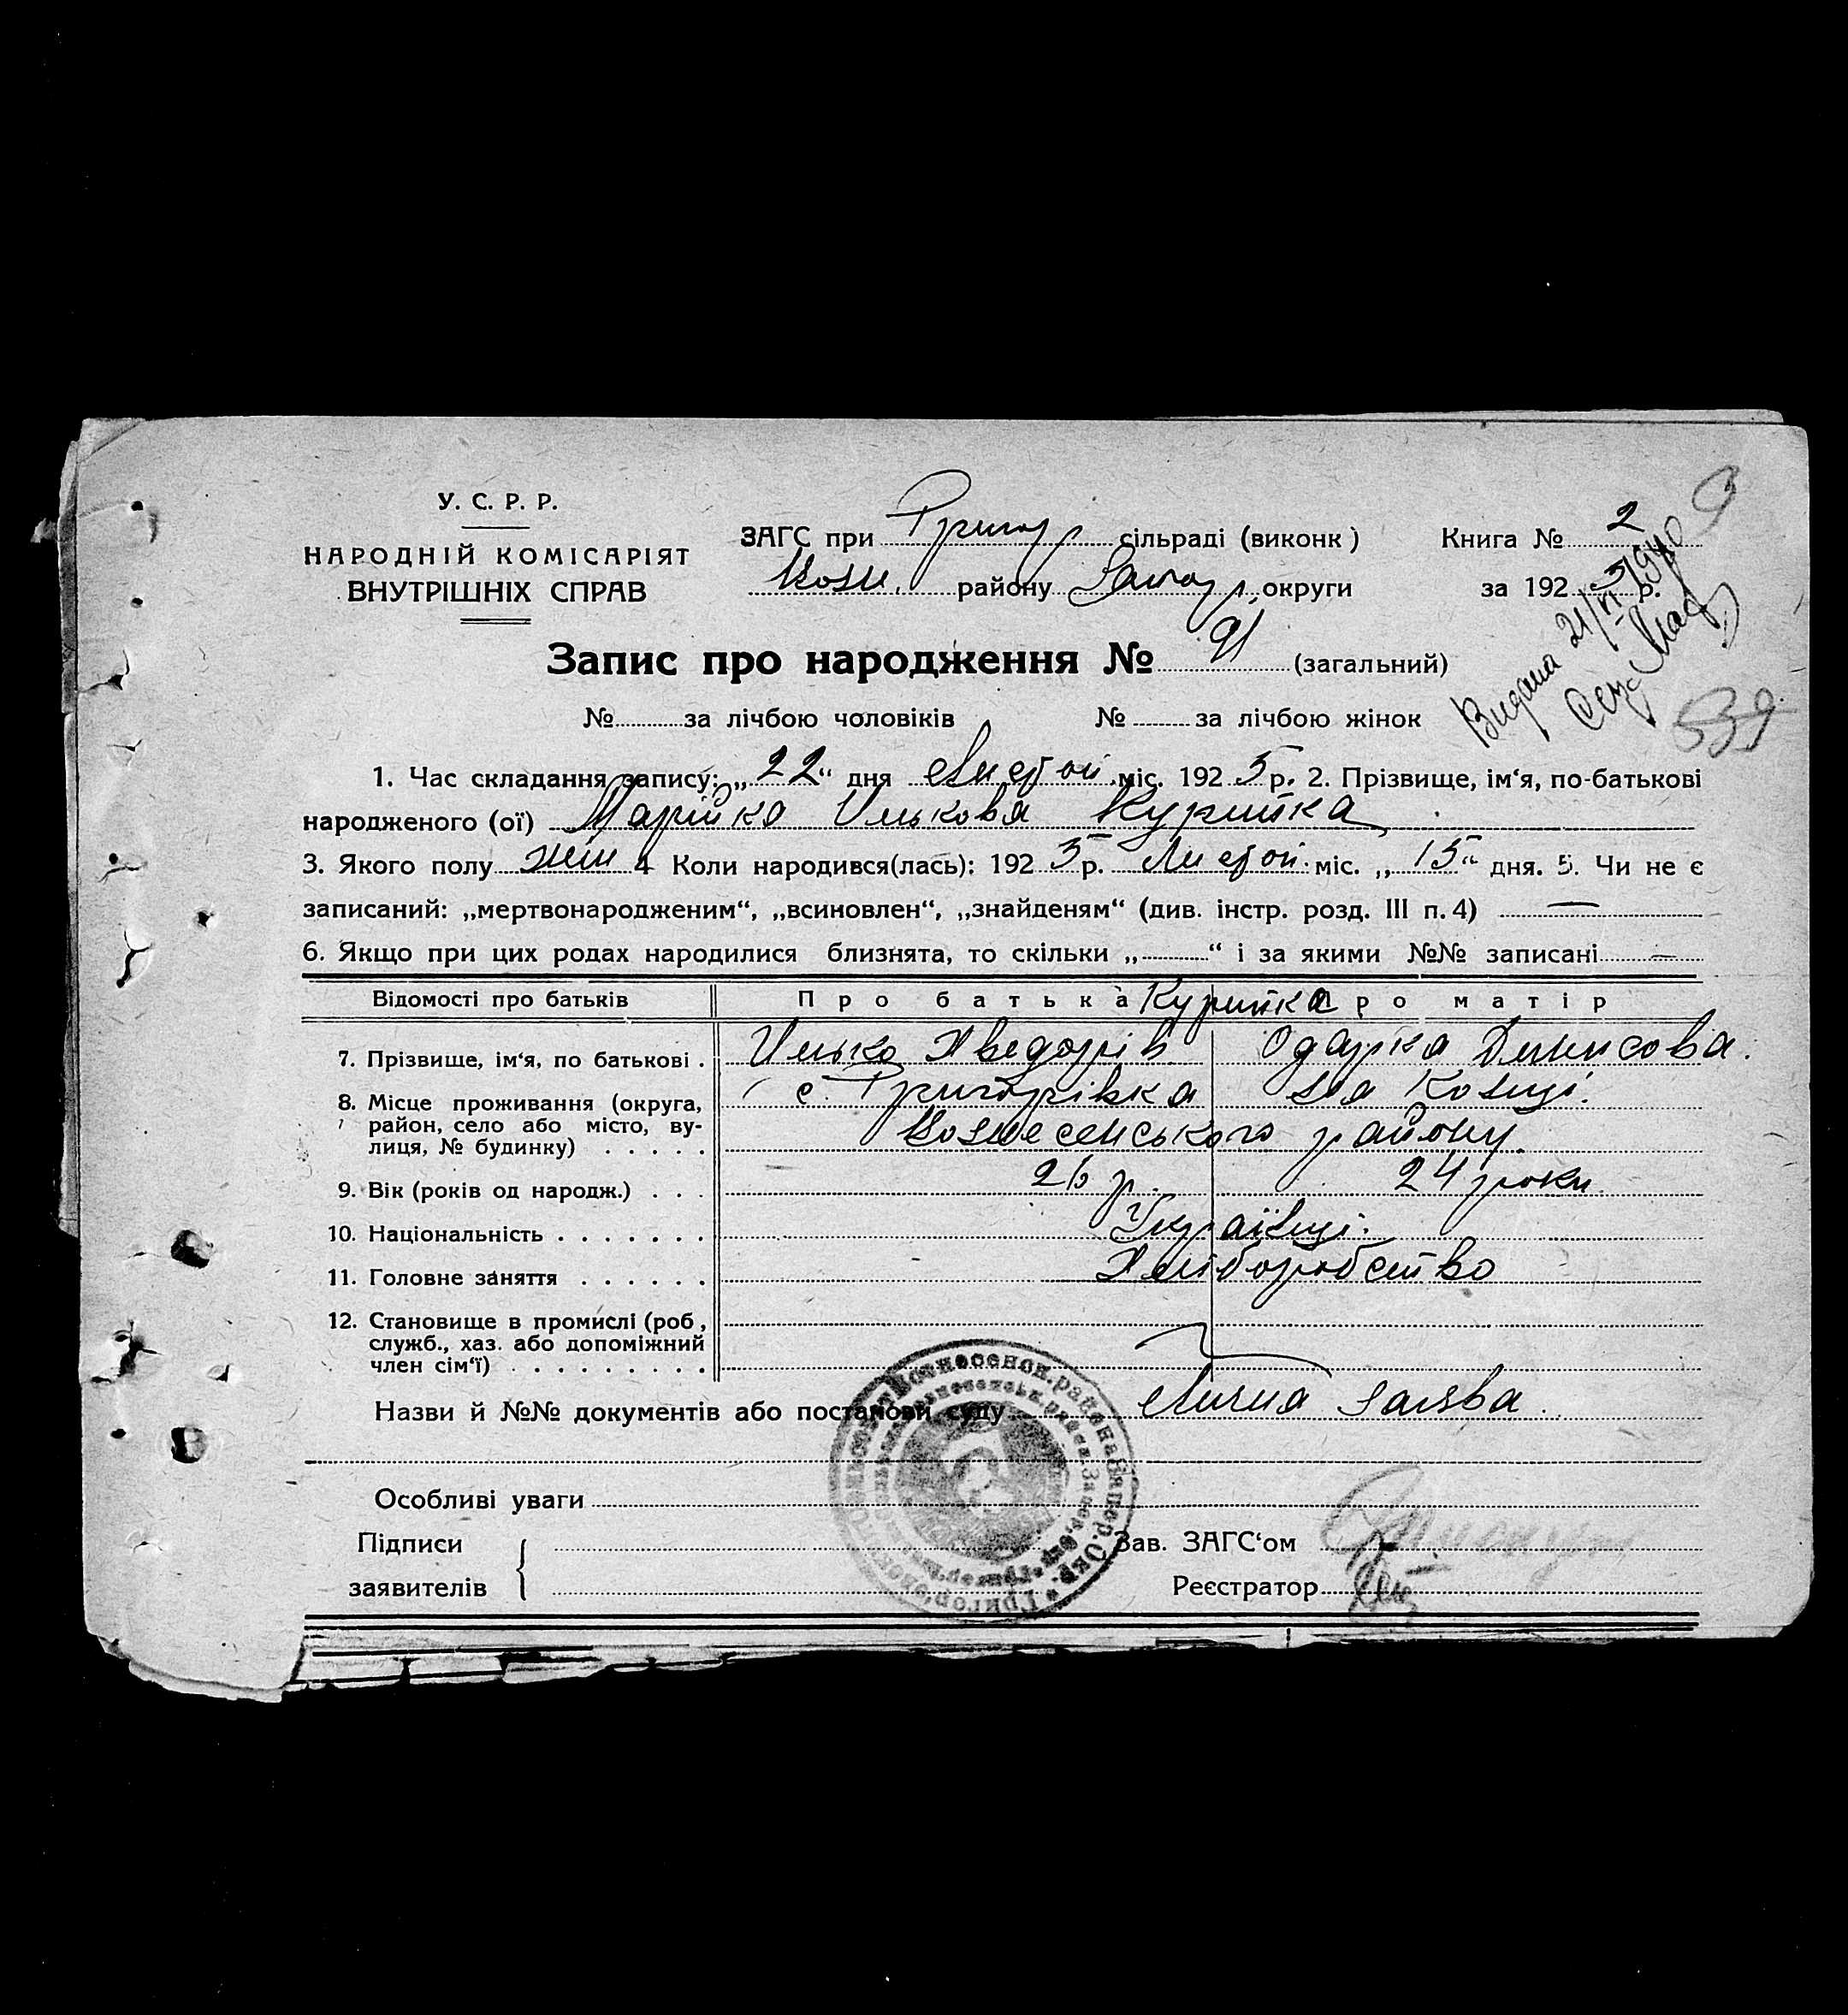 У. С. Р. Р.
НАРОДНІЙ КОМІСАРІЯТ
ВНУТРІШНІХ СПРАВ
ЗАГС при Григор сільраді (виконк )
Возн. району Запор. округи
Книга № 2
за 192 5 р.
Видана 21/VI 1940
539
Запис про народження № 91 (загальний)
№ за лічбою чоловіків № за лічбою жінок
1. Час складання запису: „ 22 “ дня Листоп. міс. 192 5 р. 2. Прізвище, ім‘я, по-батькові
народженого (ої) Марійка Илькова Курипка
3. Якого полу жін 4 Коли народився(лась): 192 5 р. Листоп. міс. „ 15 “ дня. 5. Чи не є
записаний: „мертвонародженим“, „всиновлен“, „знайденям“ (див. інстр. розд. III п. 4) —
6. Якщо при цих родах народилися близнята, то скільки „ “ і за якими №№ записані —
Відомості про батьків Про батька Курипка Про матір
7. Прізвище, ім‘я, по батькові . Илько Хведорів Одарка Денисова.
8. Місце проживання (округа, с. Григорівка
район, село або місто, ву-
лиця, № будинку) . . . . . Вознесенського району.
9. Вік (років од народж.) . . . 26 р. 24 роки.
10. Національність . . . . . . . Українці.
11. Головне заняття . . . . . . Хліборобство
12. Становище в промислі (роб ,
служб., хаз. або допоміжний
член сім‘ї) . . . . . . . . .
Назви й №№ документів або постанови суду Лична заява.
Особливі уваги
Підписи
заявителів
Зав. ЗАГС‘ом
Реєстратор